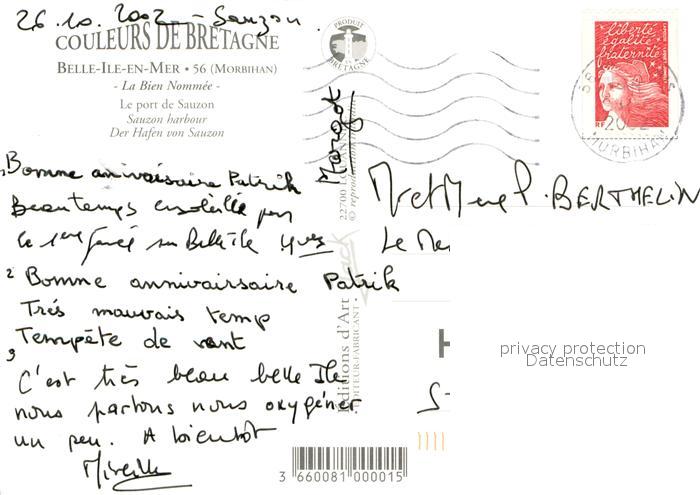 26.10.2002 - Sauzon.
COULEURS DE BRETAGNE
BELLE-ILE-EN-MER • 56 (MORBIHAN)
- La Bien Nommée -
Le port de Sauzon
Sauzon harbour
Der Hafen von Sauzon
PRODUIT
BRETAGNE
liberté
égalité
fraternité
RF
2002
MORBIHAN
1 Bonne anniversaire Patrik
Beau temps ensoleillé pour
la 1ère journée sur Belle ile Yves
2 Bonne annivairsaire Patrik
Trés mauvais temp
Tempête de vant
3
C'est très beau belle Ile
nous partons nous oxygéner
un peu. A bientôt
Mireille
Margot
22700 LO
© repro
Jack
Editions d'Art
EDITEUR-FABRICANT
M et Mme P. BERTHELIN
Le
H
privacy protection
Datenschutz
3 660081 000015